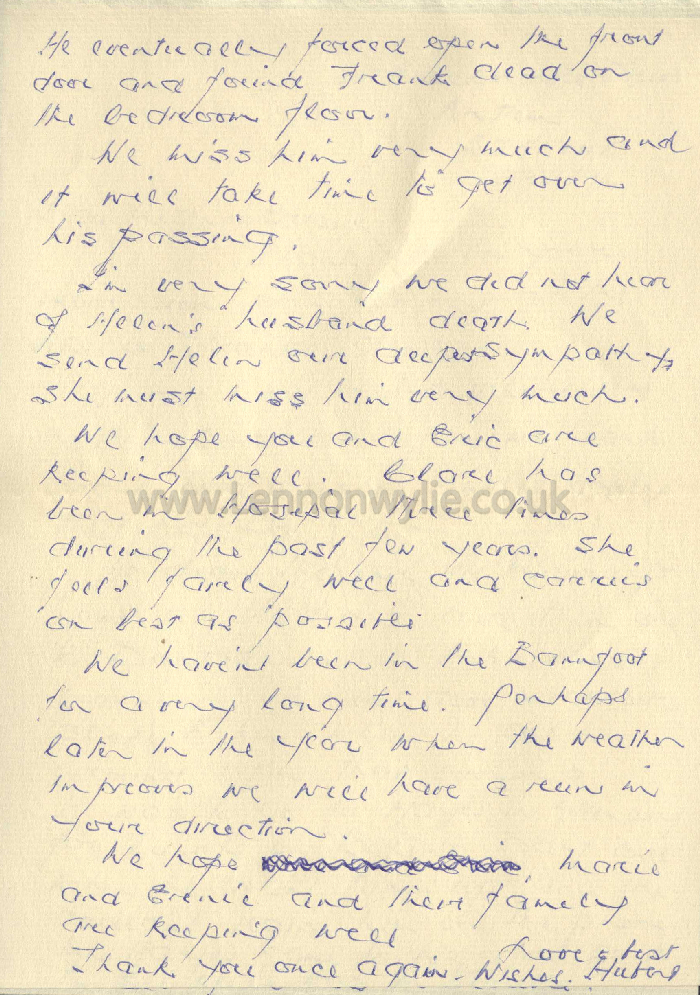 He eventually forced open the front
door and found Frank dead on
the bedroom floor.
We miss him very much and
it will take time to get over
his passing.
I'm very sorry we did not hear
of Helen's husband death. We
send Helen our deepest sympathy,
she must miss him very much.
We hope you and Eric are
keeping well. Clare has
www.Lennonwylie.co.uk
been in Hospital three times
during the past few years. She
feels farely well and carries
on best as possible
We haven't been in the Bannfoot
for a very long time. Perhaps
later in the year when the weather
improves we will have a run in
your direction.
We hope , Marie
and Ernie and their family
are keeping well
Thank you once again - Love & best
Wishes. Hubert